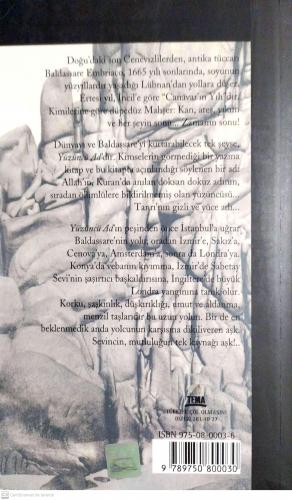 Doğu'daki son Cenevizlilerden, antika tüccarı
Baldassare Embriaco, 1665 yılı sonlarında, soyunun
yüzyıllardır yaşadığı Lübnan'dan yollara düşer.
Ertesi yıl, İncil'e göre "Canavar'ın Yılı"dır.
Kimilerine göre düpedüz Mahşer: Kan, ateş, yıkım
ve her şeyin sonu... Zamanın sonu!
Dünyayı ve Baldassare'yi kurtarabilecek tek şeyse,
Yüzüncü Ad'dır. Kimselerin görmediği bir yazma
kitap ve bu kitapta açınlandığı söylenen bir adı
Allah'ın; Kuran'da anılan doksan dokuz adının,
sıradan ölümlülere bildirilmemiş olan yüzüncüsü...
Tanrı'nın gizli ve yüce adı...
Yüzüncü Ad'ın peşinden önce İstanbul'a uğrar
Baldassare'nin yolu; oradan İzmir'e, Sakız'a,
Cenova'ya, Amsterdam'a, sonra da Londra'ya.
Konya'da vebanın kıyımına, İzmir'de Sabetay
Sevi'nin şaşırtıcı başkaldırısına, İngiltere'de büyük
Londra yangınına tanık olur.
Korku, şaşkınlık, düşkırıklığı, umut ve aldanma,
menzil taşlarıdır bu uzun yolun. Bir de en
beklenmedik anda yolcunun karşısına dikiliveren aşk.
Sevincin, mutluluğun tek kaynağı aşk!..
TEMA
TÜRKİYE ÇÖL OLMASIN!
ISBN 975-08-0003-6
9 789750 800030